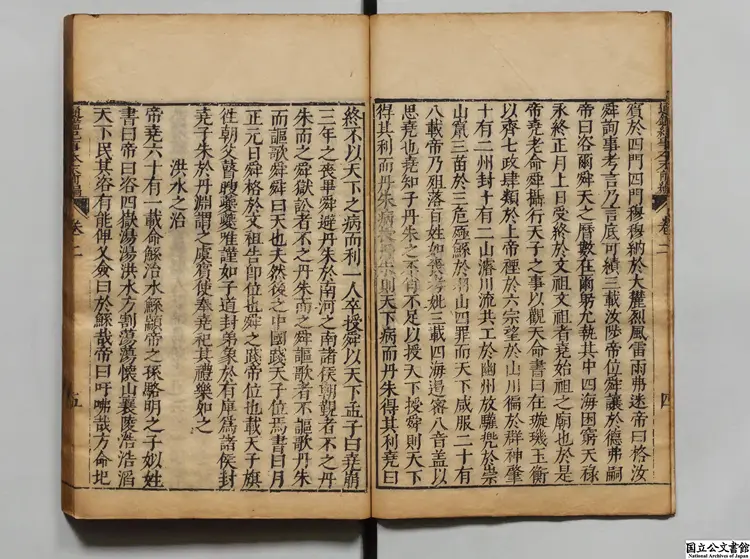 賓於四門四門穆穆納於大麓烈風雷雨弗迷帝曰格汝
舜詢事考言乃言底可績三載汝陟帝位舜讓於德弗嗣
帝曰咨爾舜天之曆數在爾躬允執其中四海困窮天祿
永終正月上日受終於文祖文祖者堯始祖之廟也於是
帝堯老命舜攝行天子之事以觀天命書曰在璇璣玉衡
以齊七政肆類於上帝禋於六宗望於山川徧於群神肇
十有二州封十有二山濬川流共工於幽州放驩兜於崇
山竄三苗於三危殛鯀於羽山四罪而天下咸服二十有
八載帝乃殂落百姓如喪考妣三載四海遏密八音蓋以
思堯也堯知子丹朱之不肖不足以授天下授舜則天下
得其利而丹朱病授丹朱則天下病而丹朱得其利堯曰
卷二
四
終不以天下之病而利一人卒授舜以天下孟子曰堯崩
三年之喪畢舜避丹朱於南河之南諸侯朝覲者不之丹
朱而之舜獄訟者不之丹朱而之舜謳歌者不謳歌丹朱
而謳歌舜舜曰天也夫然後之中國踐天子位焉書曰月
正元日舜格於文祖告即位也舜之踐帝位也載天子旗
往朝父瞽瞍夔夔唯謹如子道封弟象於有庳為諸侯封
堯子朱於丹淵謂之虞賓使奉堯祀其禮樂如之
洪水之治
帝堯六十有一載命鯀治水鯀顓帝之孫駱明之子姒姓
書曰帝曰咨四嶽湯湯洪水方割蕩蕩懷山襄陵浩浩滔
天下民其咨有能俾乂僉曰於鯀哉帝曰吁咈哉方命圮
卷二
五
国立公文書館
National Archives of Japan